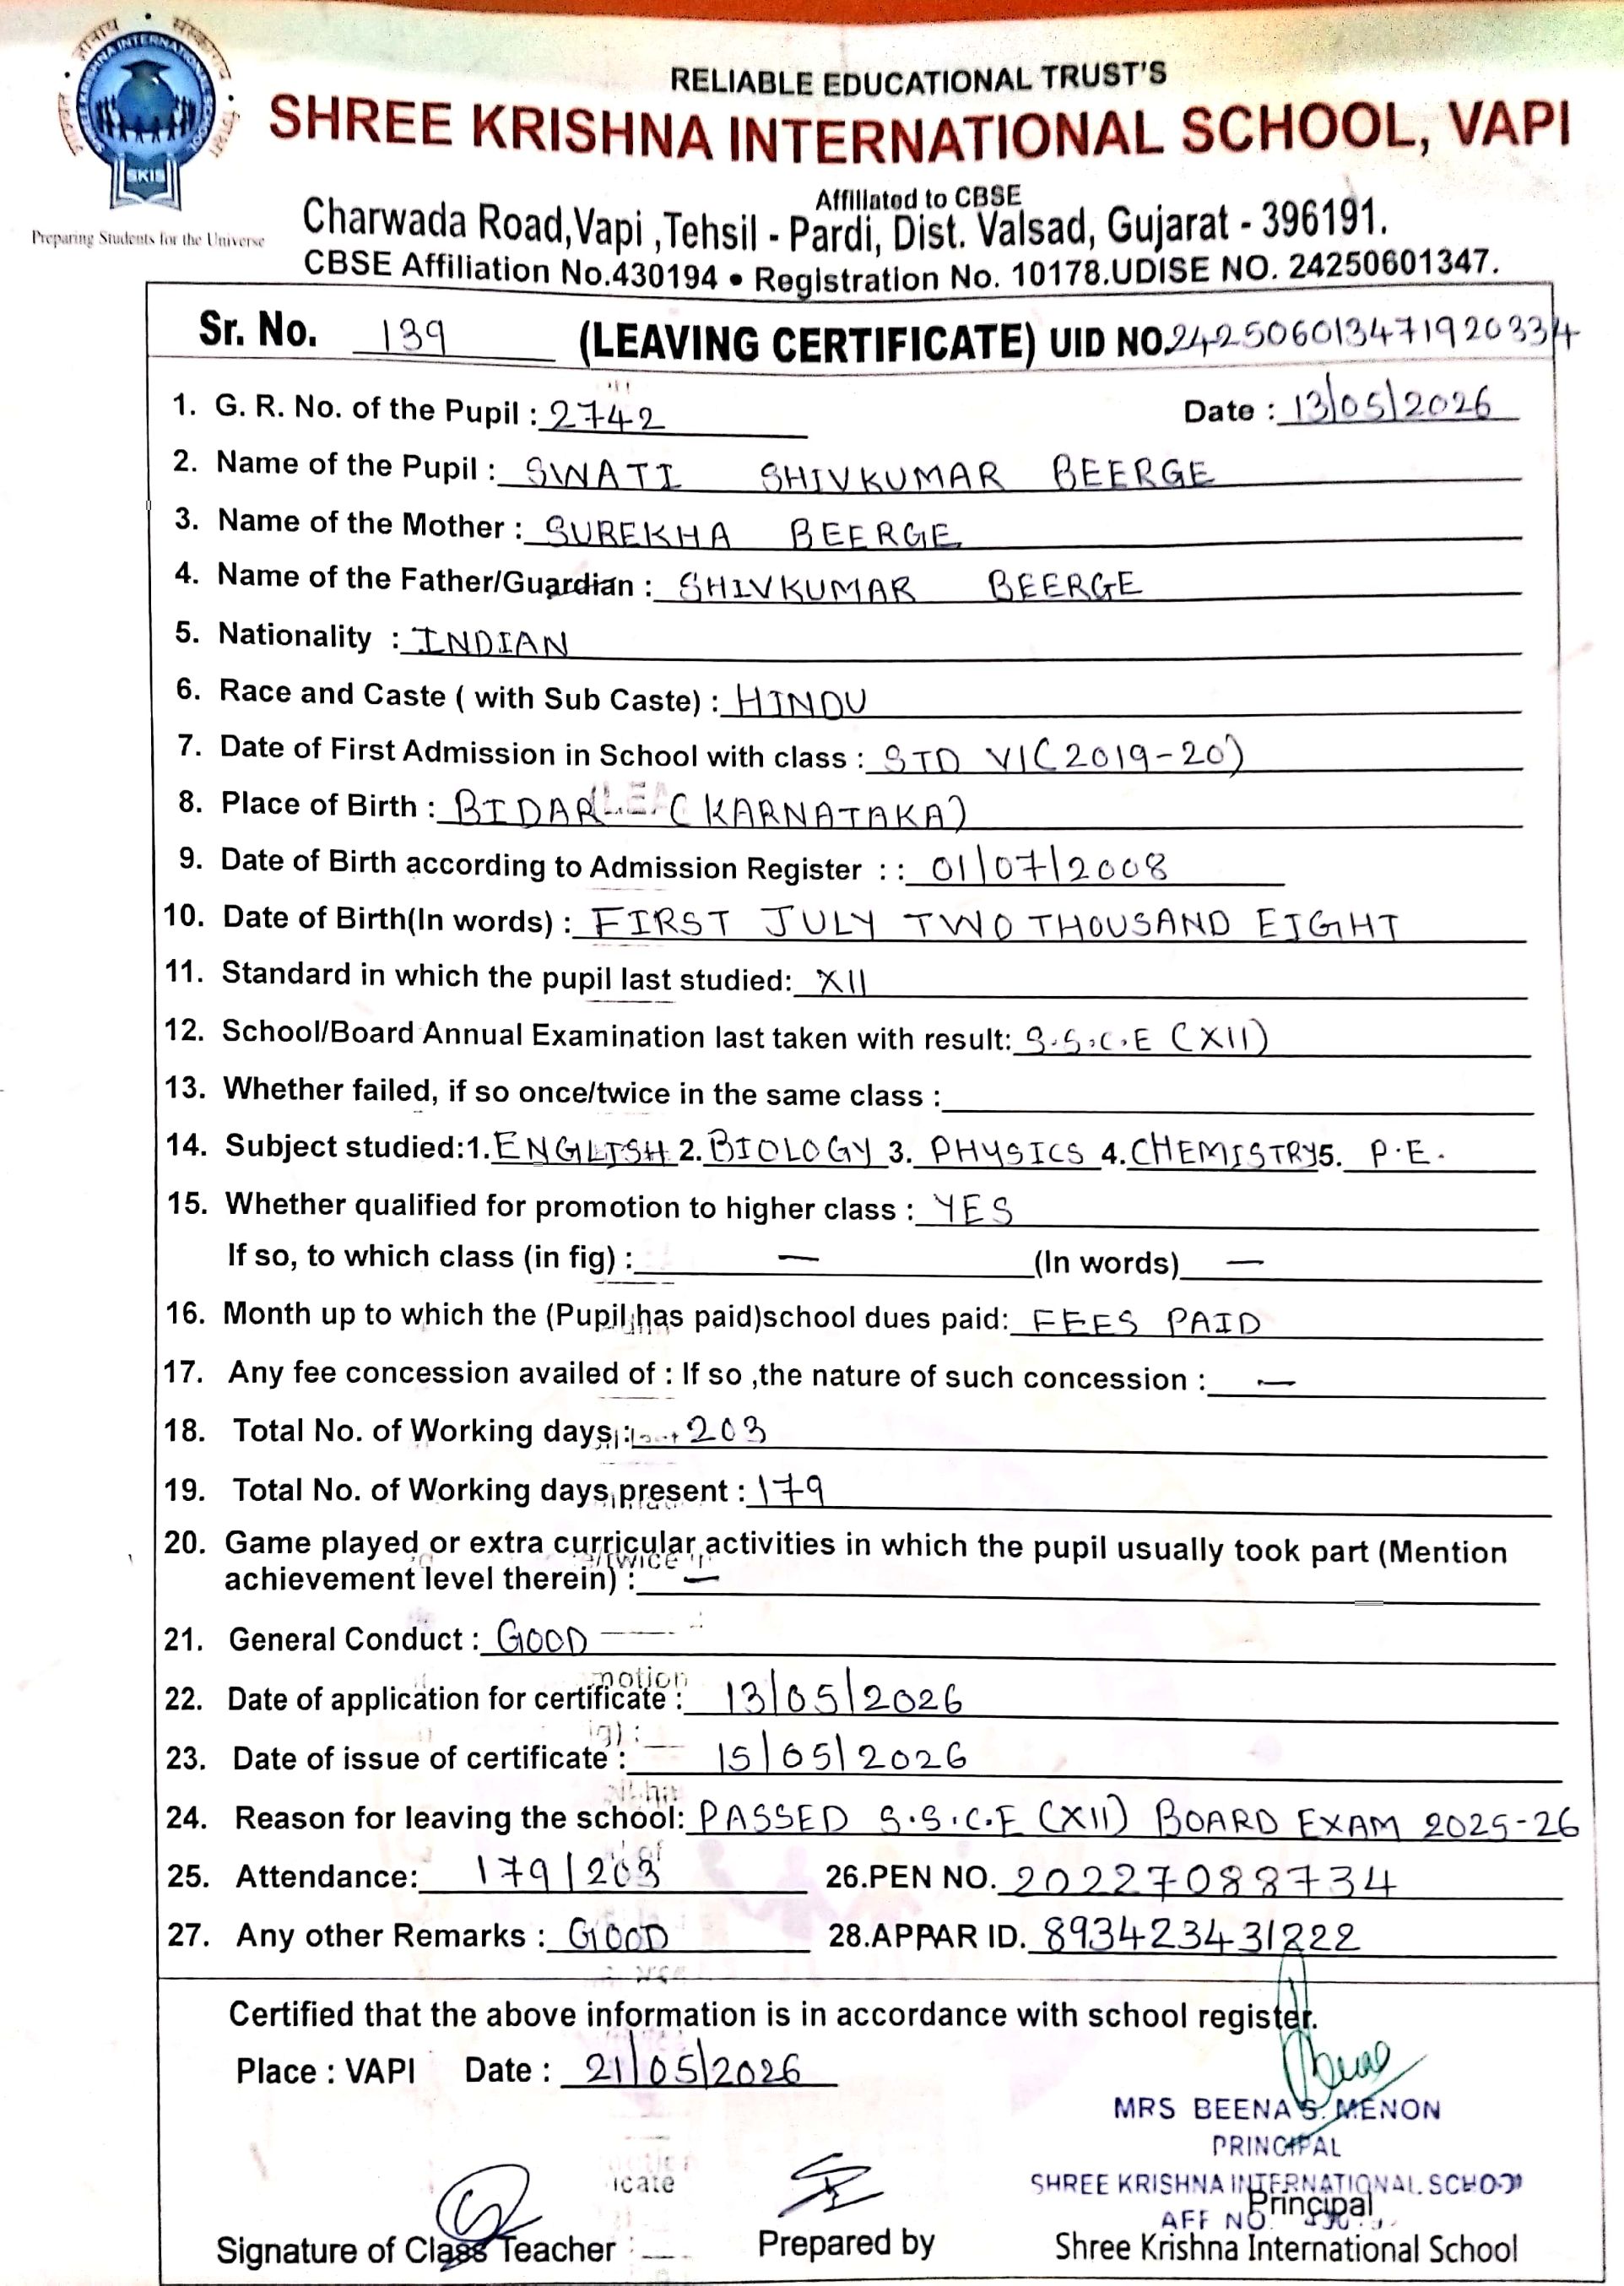 RELIABLE EDUCATIONAL TRUST'S
SHREE KRISHNA INTERNATIONAL SCHOOL, VAPI
SKIS
Preparing Students for the Universe
Affiliated to CBSE
Charwada Road,Vapi ,Tehsil - Pardi, Dist. Valsad, Gujarat - 396191.
CBSE Affiliation No.430194 • Registration No. 10178.UDISE NO. 24250601347.
Sr. No. 139 (LEAVING CERTIFICATE) UID NO.242506013471920334
1. G. R. No. of the Pupil : 2742 Date : 13/05/2026
2. Name of the Pupil : SWATI SHIVKUMAR BEERGE
3. Name of the Mother : SUREKHA BEERGE
4. Name of the Father/Guardian : SHIVKUMAR BEERGE
5. Nationality : INDIAN
6. Race and Caste ( with Sub Caste) : HINDU
7. Date of First Admission in School with class : STD VI(2019-20)
8. Place of Birth : BIDAR (KARNATAKA)
9. Date of Birth according to Admission Register : : 01/07/2008
10. Date of Birth(In words) : FIRST JULY TWO THOUSAND EIGHT
11. Standard in which the pupil last studied: XII
12. School/Board Annual Examination last taken with result: S.S.C.E (XII)
13. Whether failed, if so once/twice in the same class :
14. Subject studied:1. ENGLISH 2. BIOLOGY 3. PHYSICS 4. CHEMISTRY 5. P.E.
15. Whether qualified for promotion to higher class : YES
If so, to which class (in fig) : — (In words) —
16. Month up to which the (Pupil has paid)school dues paid: FEES PAID
17. Any fee concession availed of : If so ,the nature of such concession : —
18. Total No. of Working days : 203
19. Total No. of Working days present : 179
20. Game played or extra curricular activities in which the pupil usually took part (Mention
achievement level therein) : —
21. General Conduct : GOOD
22. Date of application for certificate : 13/05/2026
23. Date of issue of certificate : 15/05/2026
24. Reason for leaving the school: PASSED S.S.C.E (XII) BOARD EXAM 2025-26
25. Attendance: 179/203 26.PEN NO. 20227088734
27. Any other Remarks : GOOD 28.APPAR ID. 893423431222
Certified that the above information is in accordance with school register.
Place : VAPI Date : 21/05/2026
MRS BEENA S. MENON
PRINCIPAL
SHREE KRISHNA INTERNATIONAL SCHOOL
AFF NO.
Principal,
Signature of Class Teacher Prepared by Shree Krishna International School